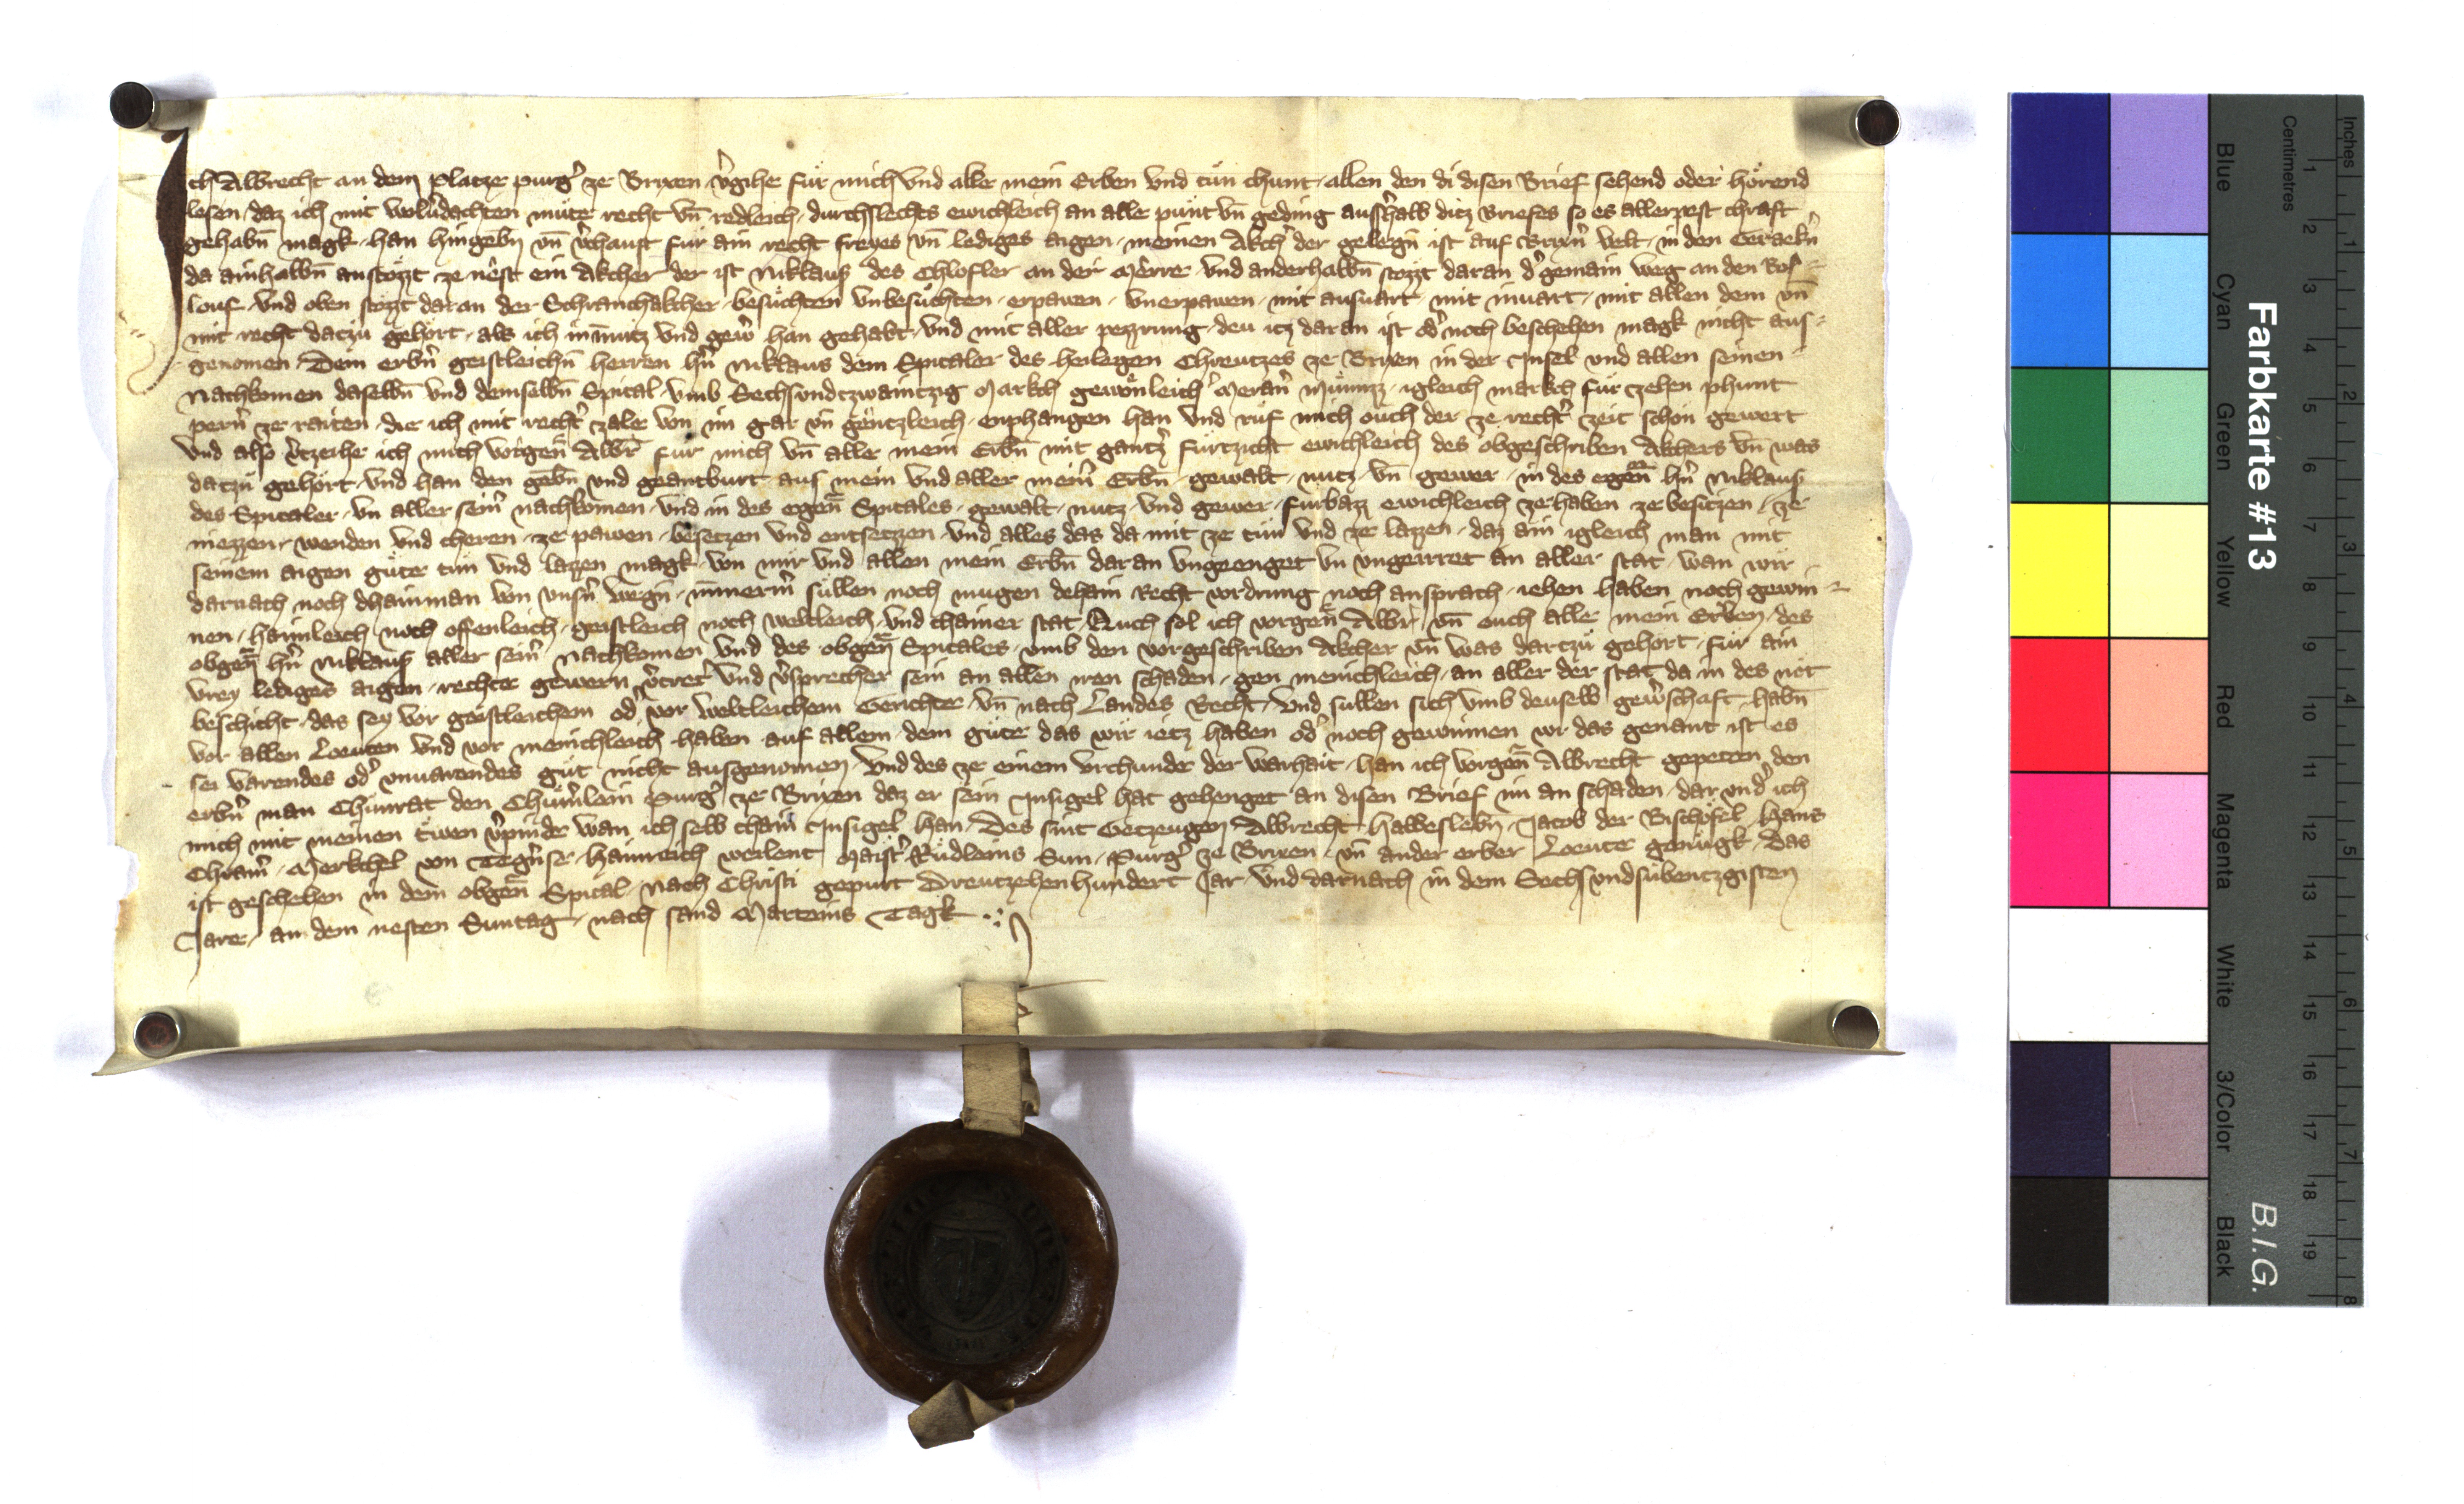 Ich Albrecht an dem platze purg̉ ze Brixen v̉gihe fuͤr mich vnd alle mein Erben vnd tuͤn chunt allen den di disen Brief sehend oder hoͤrend
lesen daz ich mit wolv̉dachten muͤte recht vn̄ redleich durchslechts ewichleich an alle puͤnt vn̄ geding ausshalb ditz Briefes so es allerpest chraft
gehabn̄ magk han hingebn vn̄ v̉chauft fuͤr ain recht freyes vn̄ lediges aigen meinen Akch̉ der gelegn̄ ist auf Brixn̉ velt in den
da ainhalbn̄ anstozzt ze nest ein Akcher der ist Niklaus des Chlosler an der Merre vnd anderhalbn̄ stozzt daran d̉ gemain weg an den Ros-
louf vnd oben stozzt daran der Schranchakcher besuͤchten vnbesuͤchten erpawen vnerpawen mit ausuart mit inuart mit allen dem vn̄
mit recht darzuͤ gehort als ich in nutz vnd gew̉ han gehabt vnd mit aller pezzrung deu itz daran ist od̉ noch beschehen magk nicht aus-
genomen Dem erbn̉ geistleichn̄ herren hn̉ Niklaus dem Spitaler des heiligen Chreutzes ze Brixen in der Insel vnd allen seinen
Nachkomen daselbn̄ vnd demselbn̄ Spital vmb Sechsundtzwaintzig Markch gewoͤnleich̉ Meran̉ Muͤnizz igleich markch fuͤr zehen phunt
pern̉ ze raiten die ich mit recht̉ zale von im gar vn̄ gentzleich enphangen han vnd ruͤf mich ouch der ze recht̉ zeit schon gewert
vnd also v̉tzeihe ich mich vorgen̄ Albr̄ fuͤr mich vn̄ alle mein Erbn̄ mit gantz̉ fuͤrtzicht ewichleich des obgeschriben Akchers vn̄ was
darzuͤ gehoͤrt vnd han den gebn̄ vnd geantburt aus mein vnd aller mein̉ Erbn̄ gewalt nutz vn̄ gewer in des egen̄ hn̉ Niklaus
des Spitaler vn̄ aller sein̉ nachkomen vnd in des egen̄ Spitales gewalt nutz vnd gewer furbazz ewichleich ze haben ze besitzen ze
niezzen wenden vnd cheren ze pawen besetzen vnd entsetzen vnd alles das da mit ze tuͤn vnd ze lazzen daz ain igleich man mit
seinem aigen guͤte tuͤn vnd lazzen magk von mir vnd allen mein Erbn̄ daran vngeenget vn̄ vngeirret an aller stat wan wir
darnach noch dhainman von vnsn̉ wegn̄ nimmerm̉ suͤllen noch mugen dehain Recht vordrung noch ansprach iehen haben noch gewin-
nen haimleich noch offenleich geistleich noch weltleich vnd chainer stat Auch sol ich vorgen̄ Albr̄ vn̄ ouch alle mein Erben des
obgen̄ hn̉ Niklaus aller sein̉ nachkomen vnd des obgen̄ Spitales vmb den vorgeschriben Akcher vn̄ was darzuͤ gehort fuͤr ain
vrey lediges aigen rechte gewern v̉tret̉ vnd v̉sprecher sein an allen iren schaden gen menichleich an aller der stat da in des not
beschicht das sey vor geistleichem od̉ vor weltleichem Gerichte vn̄ nach Landes Recht vnd sullen sich vmb deuselb gew̉schaft habn̄
vor allen Leuten vnd vor menichleich haben auf allem dem guͤte das wir ietz haben od̉ noch gewinnen wi das genant ist es
sei varendes od̉ vnuarendes guͤt nicht ausgenomen vnd des ze einem vrchunde der warhait han ich vorgen̄ Albrecht gepeten den
erbn̉ man Chunrat den Purg̉ ze Brixen daz er sein Insigel hat gehenget an disen Brief im an schaden dar vnd̉ ich
mich mit meinen trwen v̉pinde wan ich selb chain Insigel han Des sint Getzeugen Albrecht Jacob der Bischoͤfel Hans
Merkchel von Tegn̉se Hainreich weilent Maist̉ Ruͤdleins Sun Purg̉ ze Brixen vn̄ ander erber Leute genuͤgk Das
ist geschehen in dem obgen̄ Spital Nach Christi gepurt Dreutzehenhundert Jar vnd darnach in dem Sechsvndsubentzgisten
Jare an dem nesten Suntag nach sand Marteins Tagk
Farbkarte #13
B.I.G.
Blue Cyan Green Yellow Red Magenta White 3/Color Black
Centimetres 1 2 3 4 5 6 7 8 9 10 11 12 13 14 15 16 17 18 19
Inches 1 2 3 4 5 6 7 8